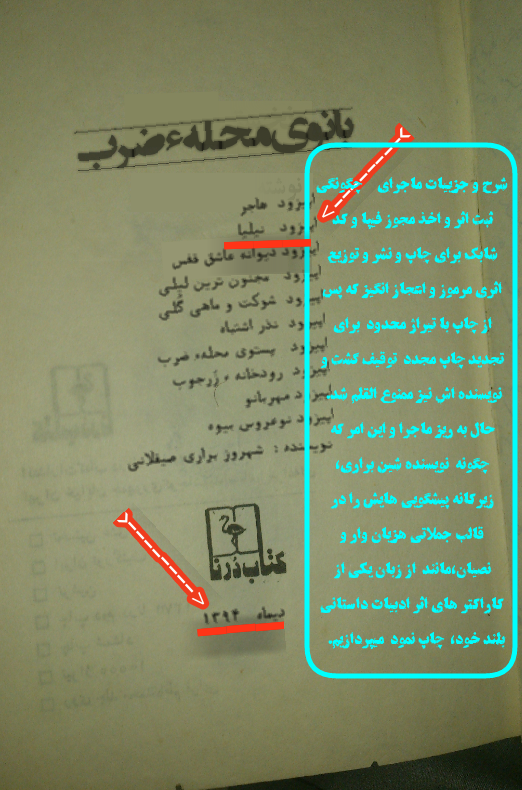 بانوی محلهء ضرب
اپیزود هاجر
اپیزود نیلیا
اپیزود دیوانه عاشق قفس
اپیزود مجنون ترین لیلی
اپیزود شوکت و ماهی گلی
اپیزود نذر اشتباه
اپیزود پستوی محلهء ضرب
اپیزود رودخانه ء زرجوب
اپیزود مهربانو
اپیزود نوعروس بیوه
نویسنده : شهروز براری صیقلانی
کتاب دُرنا
دیماه ۱۳۹۴
شرح و جزییات ماجرای چگونگی
ثبت اثر و اخذ مجوز فیپا و کد
شابک برای چاپ و نشر و توزیع
اثری مرموز و اعتجاز انگیز که پس
از چاپ با تیراژ محدود برای
تجدید چاپ مجدد توقیف گشت و
نویسنده اش نیز ممنوع القلم شد.
حال به ریز ماجرا و این امر که
چگونه نویسنده شین براری،
زیرکانه پیشگویی هایش را در
قالب جملاتی هزیان وار و
نصیان،مانند از زبان یکی از
کاراکتر های اثر ادبیات داستانی
بلند خود، چاپ نمود میپردازیم.